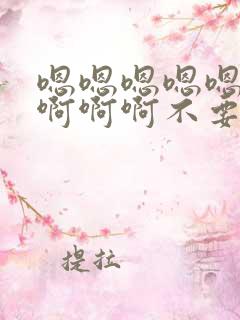 嗯嗯嗯嗯嗯
啊啊啊不要
提拉